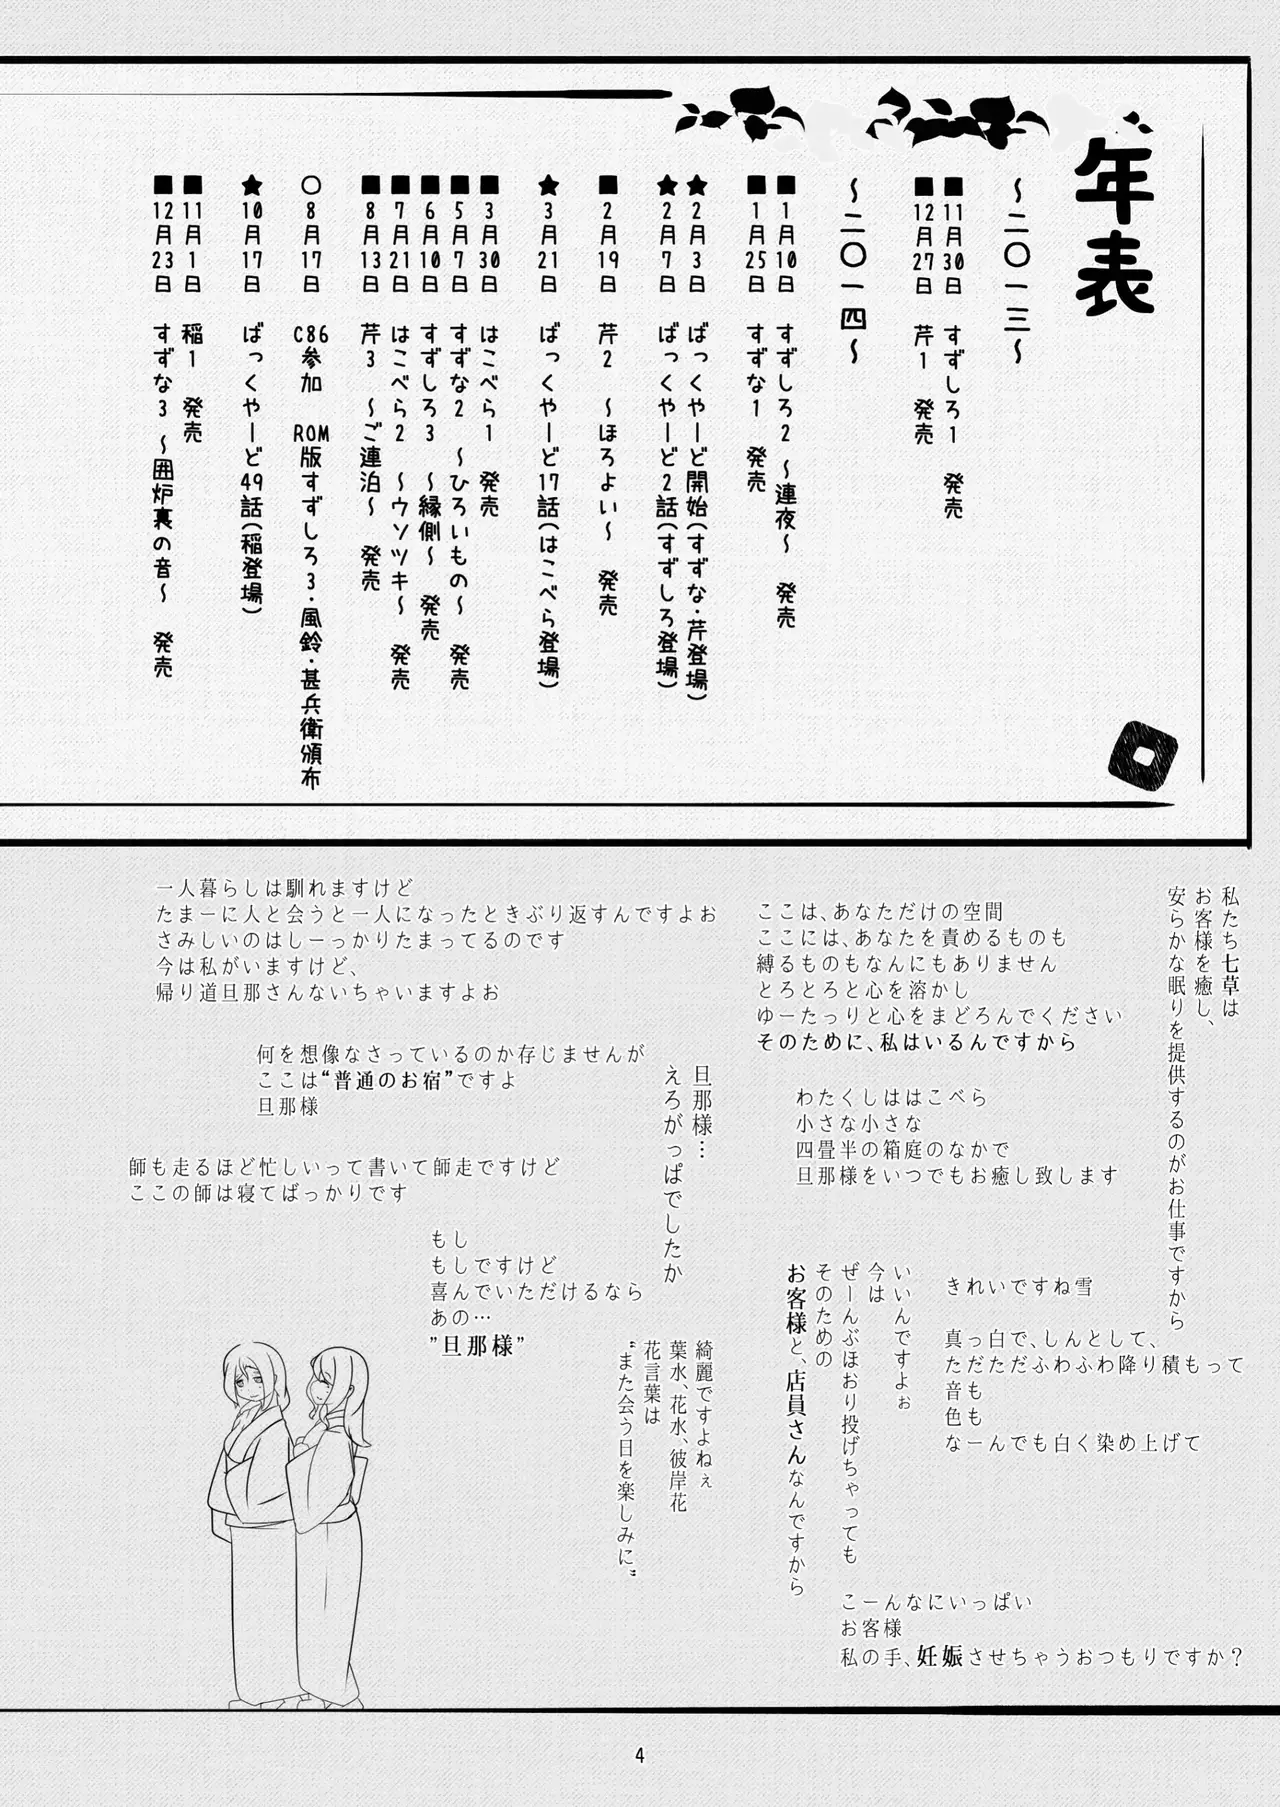 年表
～二〇一三～
■11月30日 すずしろ1 発売
■12月27日 芹1 発売
～二〇一四～
■1月10日 すずしろ2 ～連夜～ 発売
■1月25日 すずな1 発売
★2月3日 ばっくやーど開始(すずな・芹登場)
★2月7日 ばっくやーど2話(すずしろ登場)
■2月19日 芹2 ～ほろよい～ 発売
★3月21日 ばっくやーど17話(はこべら登場)
■3月30日 はこべら1 発売
■5月7日 すずな2 ～ひろいもの～ 発売
■6月10日 すずしろ3 ～縁側～ 発売
■7月21日 はこべら2 ～ウソツキ～ 発売
■8月13日 芹3 ～ご連泊～ 発売
○8月17日 C86参加 ROM版すずしろ3・風鈴・甚兵衛頒布
★10月17日 ばっくやーど49話(稲登場)
■11月1日 稲1 発売
■12月23日 すずな3 ～囲炉裏の音～ 発売
私たち七草は
お客様を癒し、
安らかな眠りを提供するのがお仕事ですから
ここは、あなただけの空間
ここには、あなたを責めるものも
縛るものもなんにもありません
とろとろと心を溶かし
ゆーたっりと心をまどろんでください
そのために、私はいるんですから
一人暮らしは馴れますけど
たまーに人と会うと一人になったときぶり返すんですよお
さみしいのはしーっかりたまってるのです
今は私がいますけど、
帰り道旦那さんないちゃいますよお
何を想像なさっているのか存じませんが
ここは“普通のお宿”ですよ
旦那様
旦那様…
えろがっぱでしたか
わたくしははこべら
小さな小さな
四畳半の箱庭のなかで
旦那様をいつでもお癒し致します
師も走るほど忙しいって書いて師走ですけど
ここの師は寝てばっかりです
もし
もしですけど
喜んでいただけるなら
あの…
”旦那様”
いいんですよぉ
今は
ぜーんぶほおり投げちゃっても
そのための
お客様と、店員さんなんですから
きれいですね雪
真っ白で、しんとして、
ただただふわふわ降り積もって
音も
色も
なーんでも白く染め上げて
綺麗ですよねぇ
葉水、花水、彼岸花
花言葉は
“また会う日を楽しみに”
こーんなにいっぱい
お客様
私の手、妊娠させちゃうおつもりですか？
4